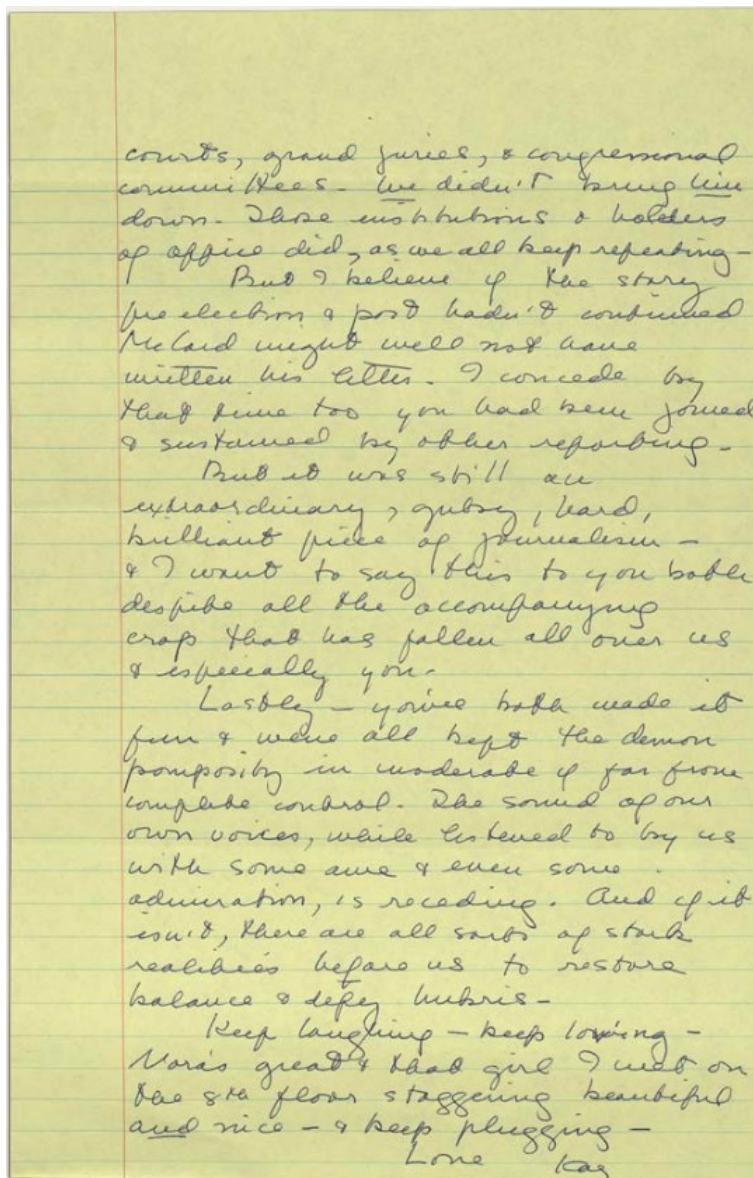 courts, grand juries, & congressional
committees - We didn't bring him
down. Those institutions & holders
of office did, as we all keep repeating -
But I believe if the story
pre election & post hadn't continued
McCord might well not have
written his letter. I concede by
that time too you had been joined
& sustained by other reporting -
But it was still an
extraordinary, gutsy, hard,
brilliant piece of journalism -
& I want to say this to you both
despite all the accompanying
crap that has fallen all over us
& especially you.
Lastly - you've both made it
fun & we've all kept the demon
pomposity in moderate if far from
complete control. The sound of our
own voices, while listened to by us
with some awe & even some
admiration, is receding. And if it
isn't, there are all sorts of stark
realities before us to restore
balance & defey hubris -
Keep laughing - keep loving -
Nora's great & that girl I met on
the 8th floor staggering beautiful
and nice - & keep plugging -
Love Kay